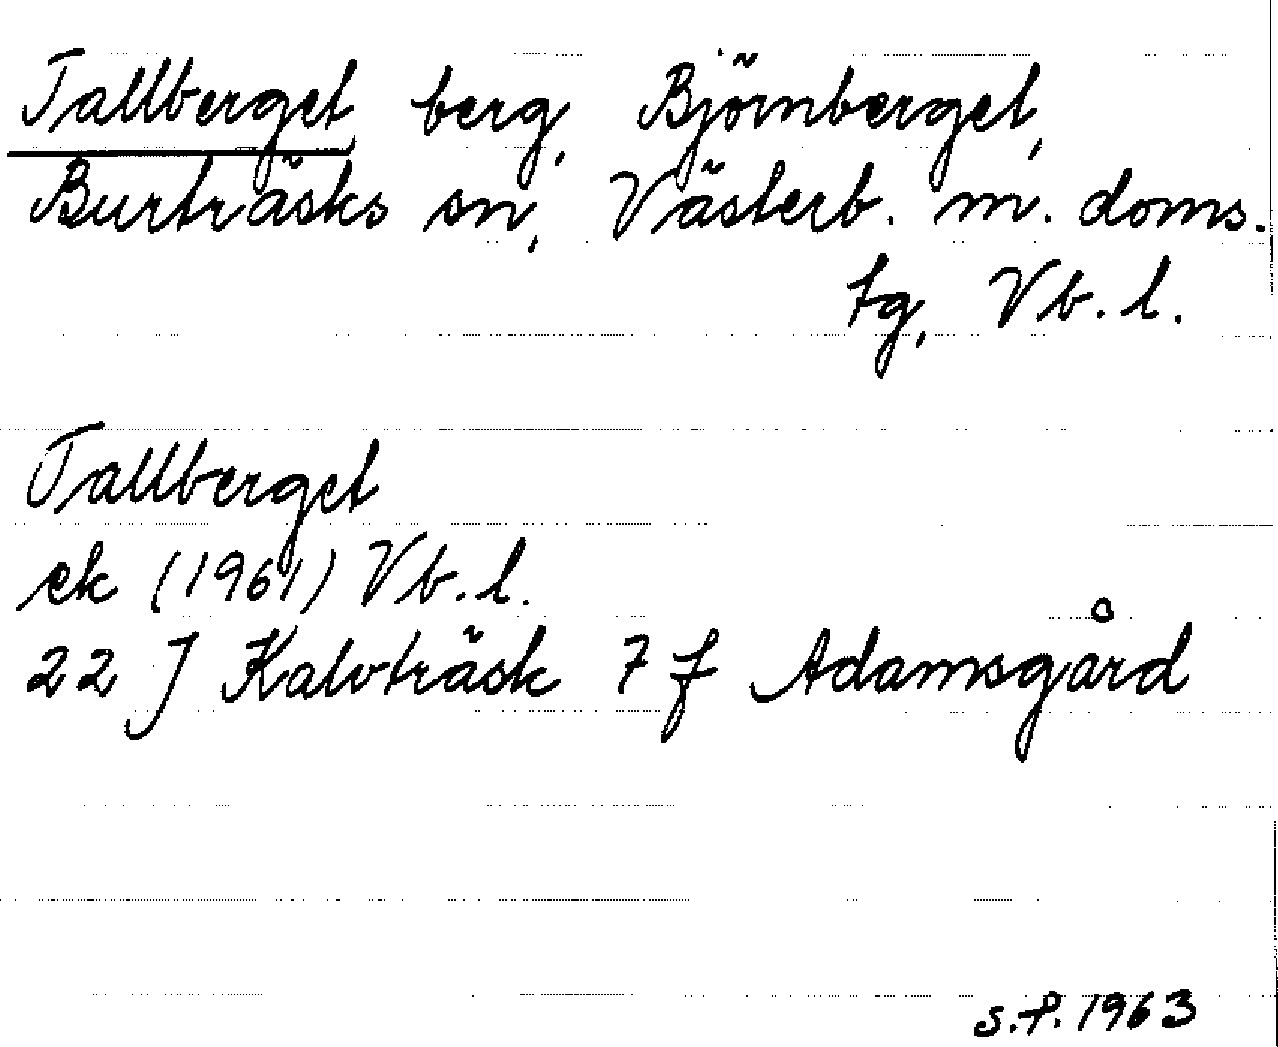 Tallberget, berg, Björnberget,
Burträsks sn, Västerb. m. doms.
tg, Vb. l.
Tallberget
ek (1961) Vb. l.
22 J Kalvträsk 7 f Adamsgård
s.f. 1963